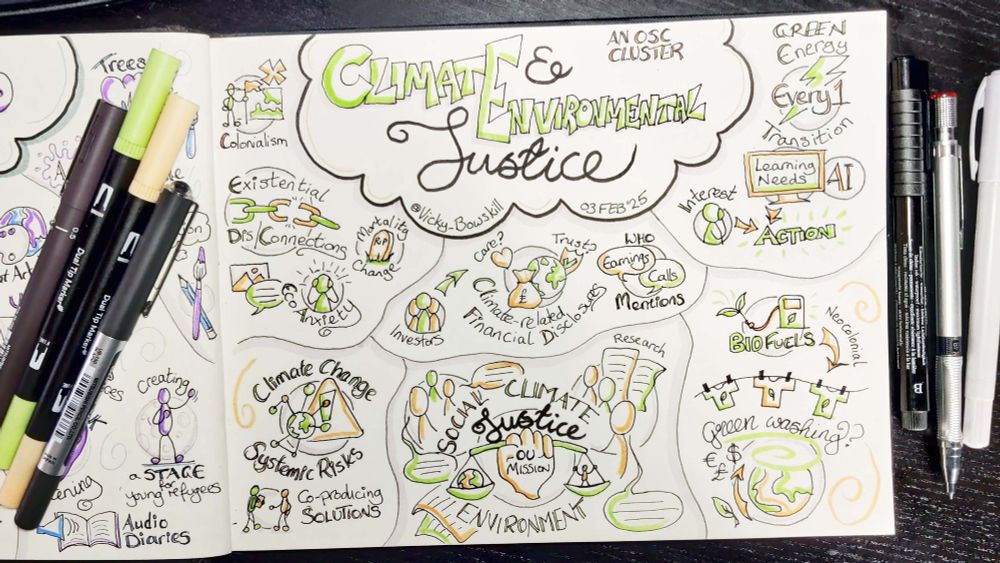 CLIMATE &
ENVIRONMENTAL
Justice
AN OSC
CLUSTER
@Vicky_Bowskill
03 FEB '25
Colonialism
Existential
Dis/Connections
Mortality
Change
Eco
Anxiety
Care?
Trust?
Climate-related
Financial Disclosures
£
Investors
WHO
Earnings
Calls
Mentions
GREEN
Energy
Every1
Transition
Learning
Needs
AI
Interest
ACTION
BIOFUELS
Neocolonial
Green washing??
€ $
£
Climate Change
Systemic Risks
Co-producing
SOLUTIONS
Research
SOCIAL CLIMATE
Justice
OU
MISSION
ENVIRONMENT
Trees
Creating
a STAGE
for
young refugees
Audio
Diaries
Dual Tip Marker
Dual Tip Marker